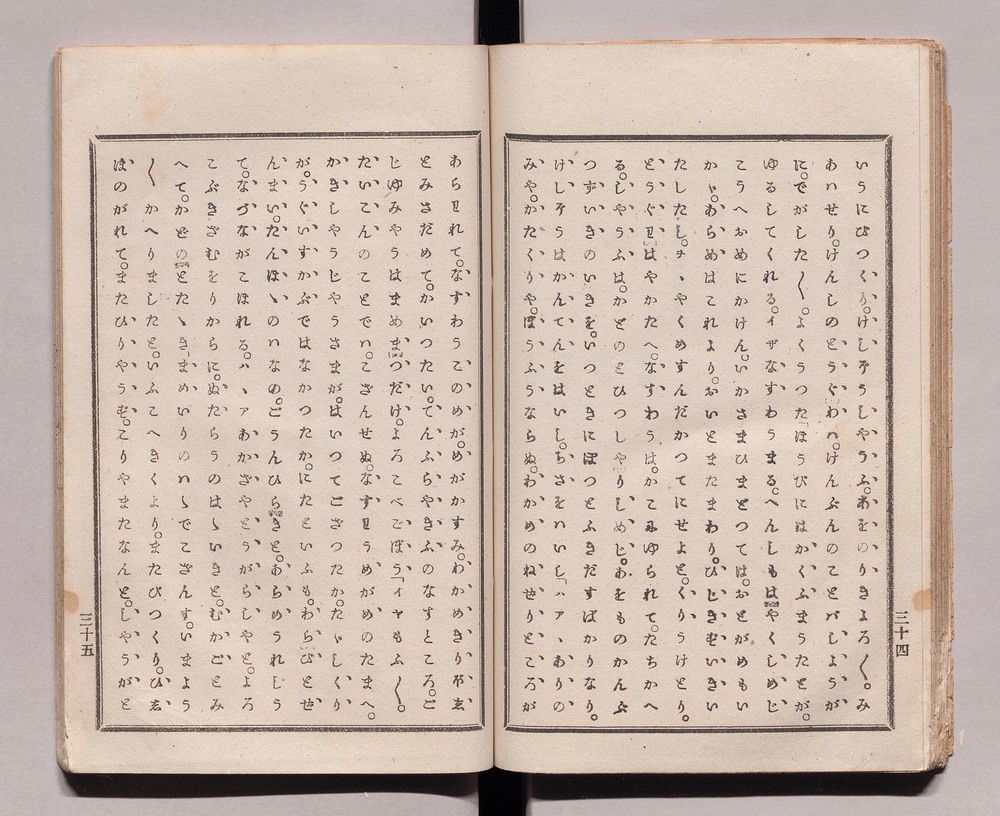 いうにびつくり。けしそうしやうふ。あをのりきよろ〱。み
あハせり。けんしのとうぐわハ。けんぶんのことバしようが
に。でがした〱。よくうつた「ほうびにはかくふまうたとが。
ゆるしてくれる。イザなすわうまる。へんしもはやくしめじ
こうへおめにかけん。いかさまひまどつては。おとがめもい
かゞ。あらめはこれより。おいとまたまわり。ひじきもいきい
たしたし。チヽやくめすんだかつてにせよと。くりうけとり。
とうぐわはやかたへ。なすわうは。かこみゆられて。たちかへ
る。しやうふは。かどのとひつしやりしめじ。あをものかんぶ
つずいきのいきを。いつときにぼつとふきだすばかりなり。
けしそうはかんてんをはいし。ちさをハいし「ハアヽありの
みや。かたくりや。ぼうふうならぬ。わかめのねせりところが
三十四
あらわれて。なすわうこのめが。めがかすみ。わかめきりまゑ
とみさだめて。かいつたい。てんふらやきふのなすところ。ご
じゆみやうはまめまつだけ。よろこべごぼう「イヤもふ〱。
たいこんのことでハ。こざんせぬ。なすわうめがめのたまへ。
かきしやうじやうさまが。はいつてござつたか。たゞしくり
が。うぐいすかぶではなかつたか。にたといふも。わらびとせ
んまい。たんほヽのハなの。ごうんひらきと。あらめうれしう
て。なづながこほれる。ハヽアあかざやとうがらしやと。よろ
こぶきざむをりからに。ぬたらうのはしいきと。むかごとみ
へて。かどのとたヽき「まめいりのハしでこざんす。いまよう
〱かへりましたと。いふこへきくより。またびつくり。ひゑ
ほのがれて。またひりやうず。こりやまたなんと。しやうがと
三十五